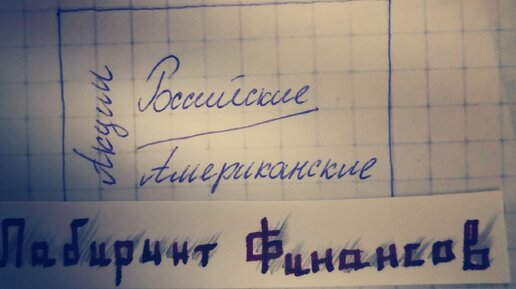 Акции
Российские
Американские
Лабиринт Финансов